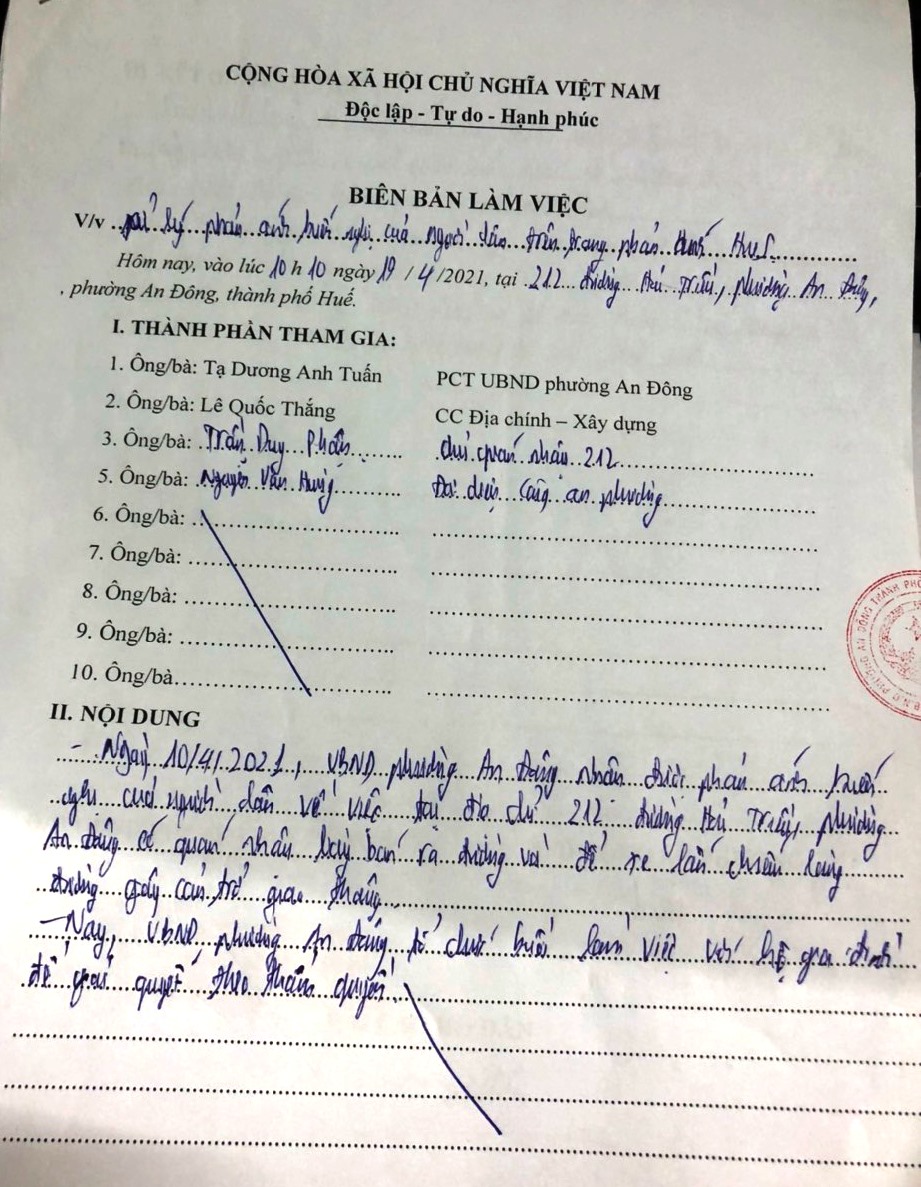 CỘNG HÒA XÃ HỘI CHỦ NGHĨA VIỆT NAM
Độc lập - Tự do - Hạnh phúc
BIÊN BẢN LÀM VIỆC
V/v xử lý phản ánh kiến nghị của người dân trên trang phản ánh HueS
Hôm nay, vào lúc 10 h 10 ngày 19 / 4 /2021, tại 212 đường Hải Triều, phường An Đông,
, phường An Đông, thành phố Huế.
I. THÀNH PHẦN THAM GIA:
1. Ông/bà: Tạ Dương Anh Tuấn PCT UBND phường An Đông
2. Ông/bà: Lê Quốc Thắng CC Địa chính – Xây dựng
3. Ông/bà: Trần Duy chủ quán nhậu 212
5. Ông/bà: Nguyễn Văn Hưng Đại diện Công an phường
6. Ông/bà:
7. Ông/bà:
8. Ông/bà:
9. Ông/bà:
10. Ông/bà
II. NỘI DUNG
- Ngày 10/4/2021, UBND phường An Đông nhận được phản ánh kiến
nghị của người dân về việc tại địa chỉ 212 đường Hải Triều, phường
An Đông có quán nhậu bày bán ra đường và để xe lấn chiếm lòng
đường gây cản trở giao thông
- Nay, UBND phường An Đông tổ chức buổi làm việc với hộ gia đình
để giải quyết theo thẩm quyền.
PHƯỜNG AN ĐÔNG THÀNH PHỐ